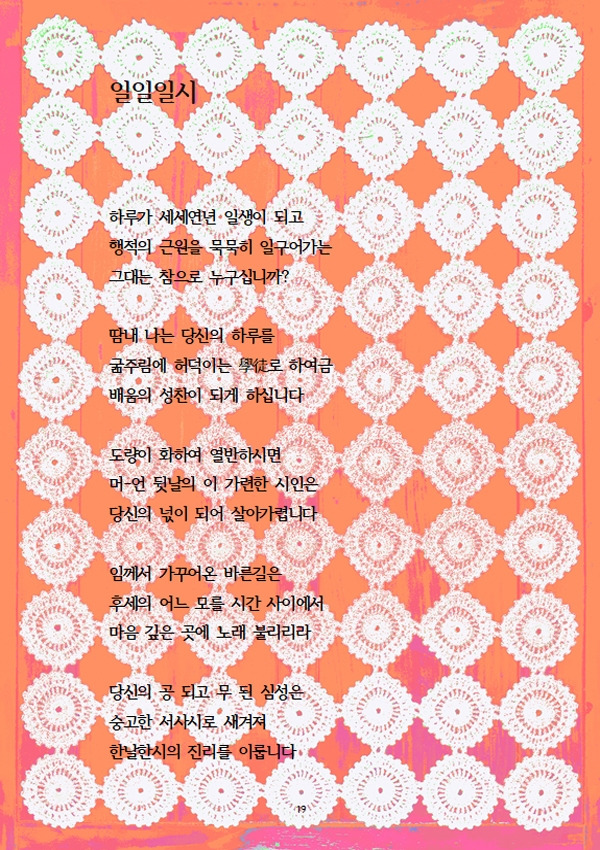 일일일시
하루가 세세연년 일생이 되고
행적의 근원을 묵묵히 일구어가는
그대는 참으로 누구십니까?
땀내 나는 당신의 하루를
굶주림에 허덕이는 學徒로 하여금
배움의 성찬이 되게 하십니다
도량이 화하여 열반하시면
머-언 뒷날의 이 가련한 시인은
당신의 넋이 되어 살아가렵니다
임께서 가꾸어온 바른길은
후세의 어느 모를 시간 사이에서
마음 깊은 곳에 노래 불리리라
당신의 공 되고 무 된 심성은
숭고한 서사시로 새겨져
한날한시의 진리를 이룹니다
19